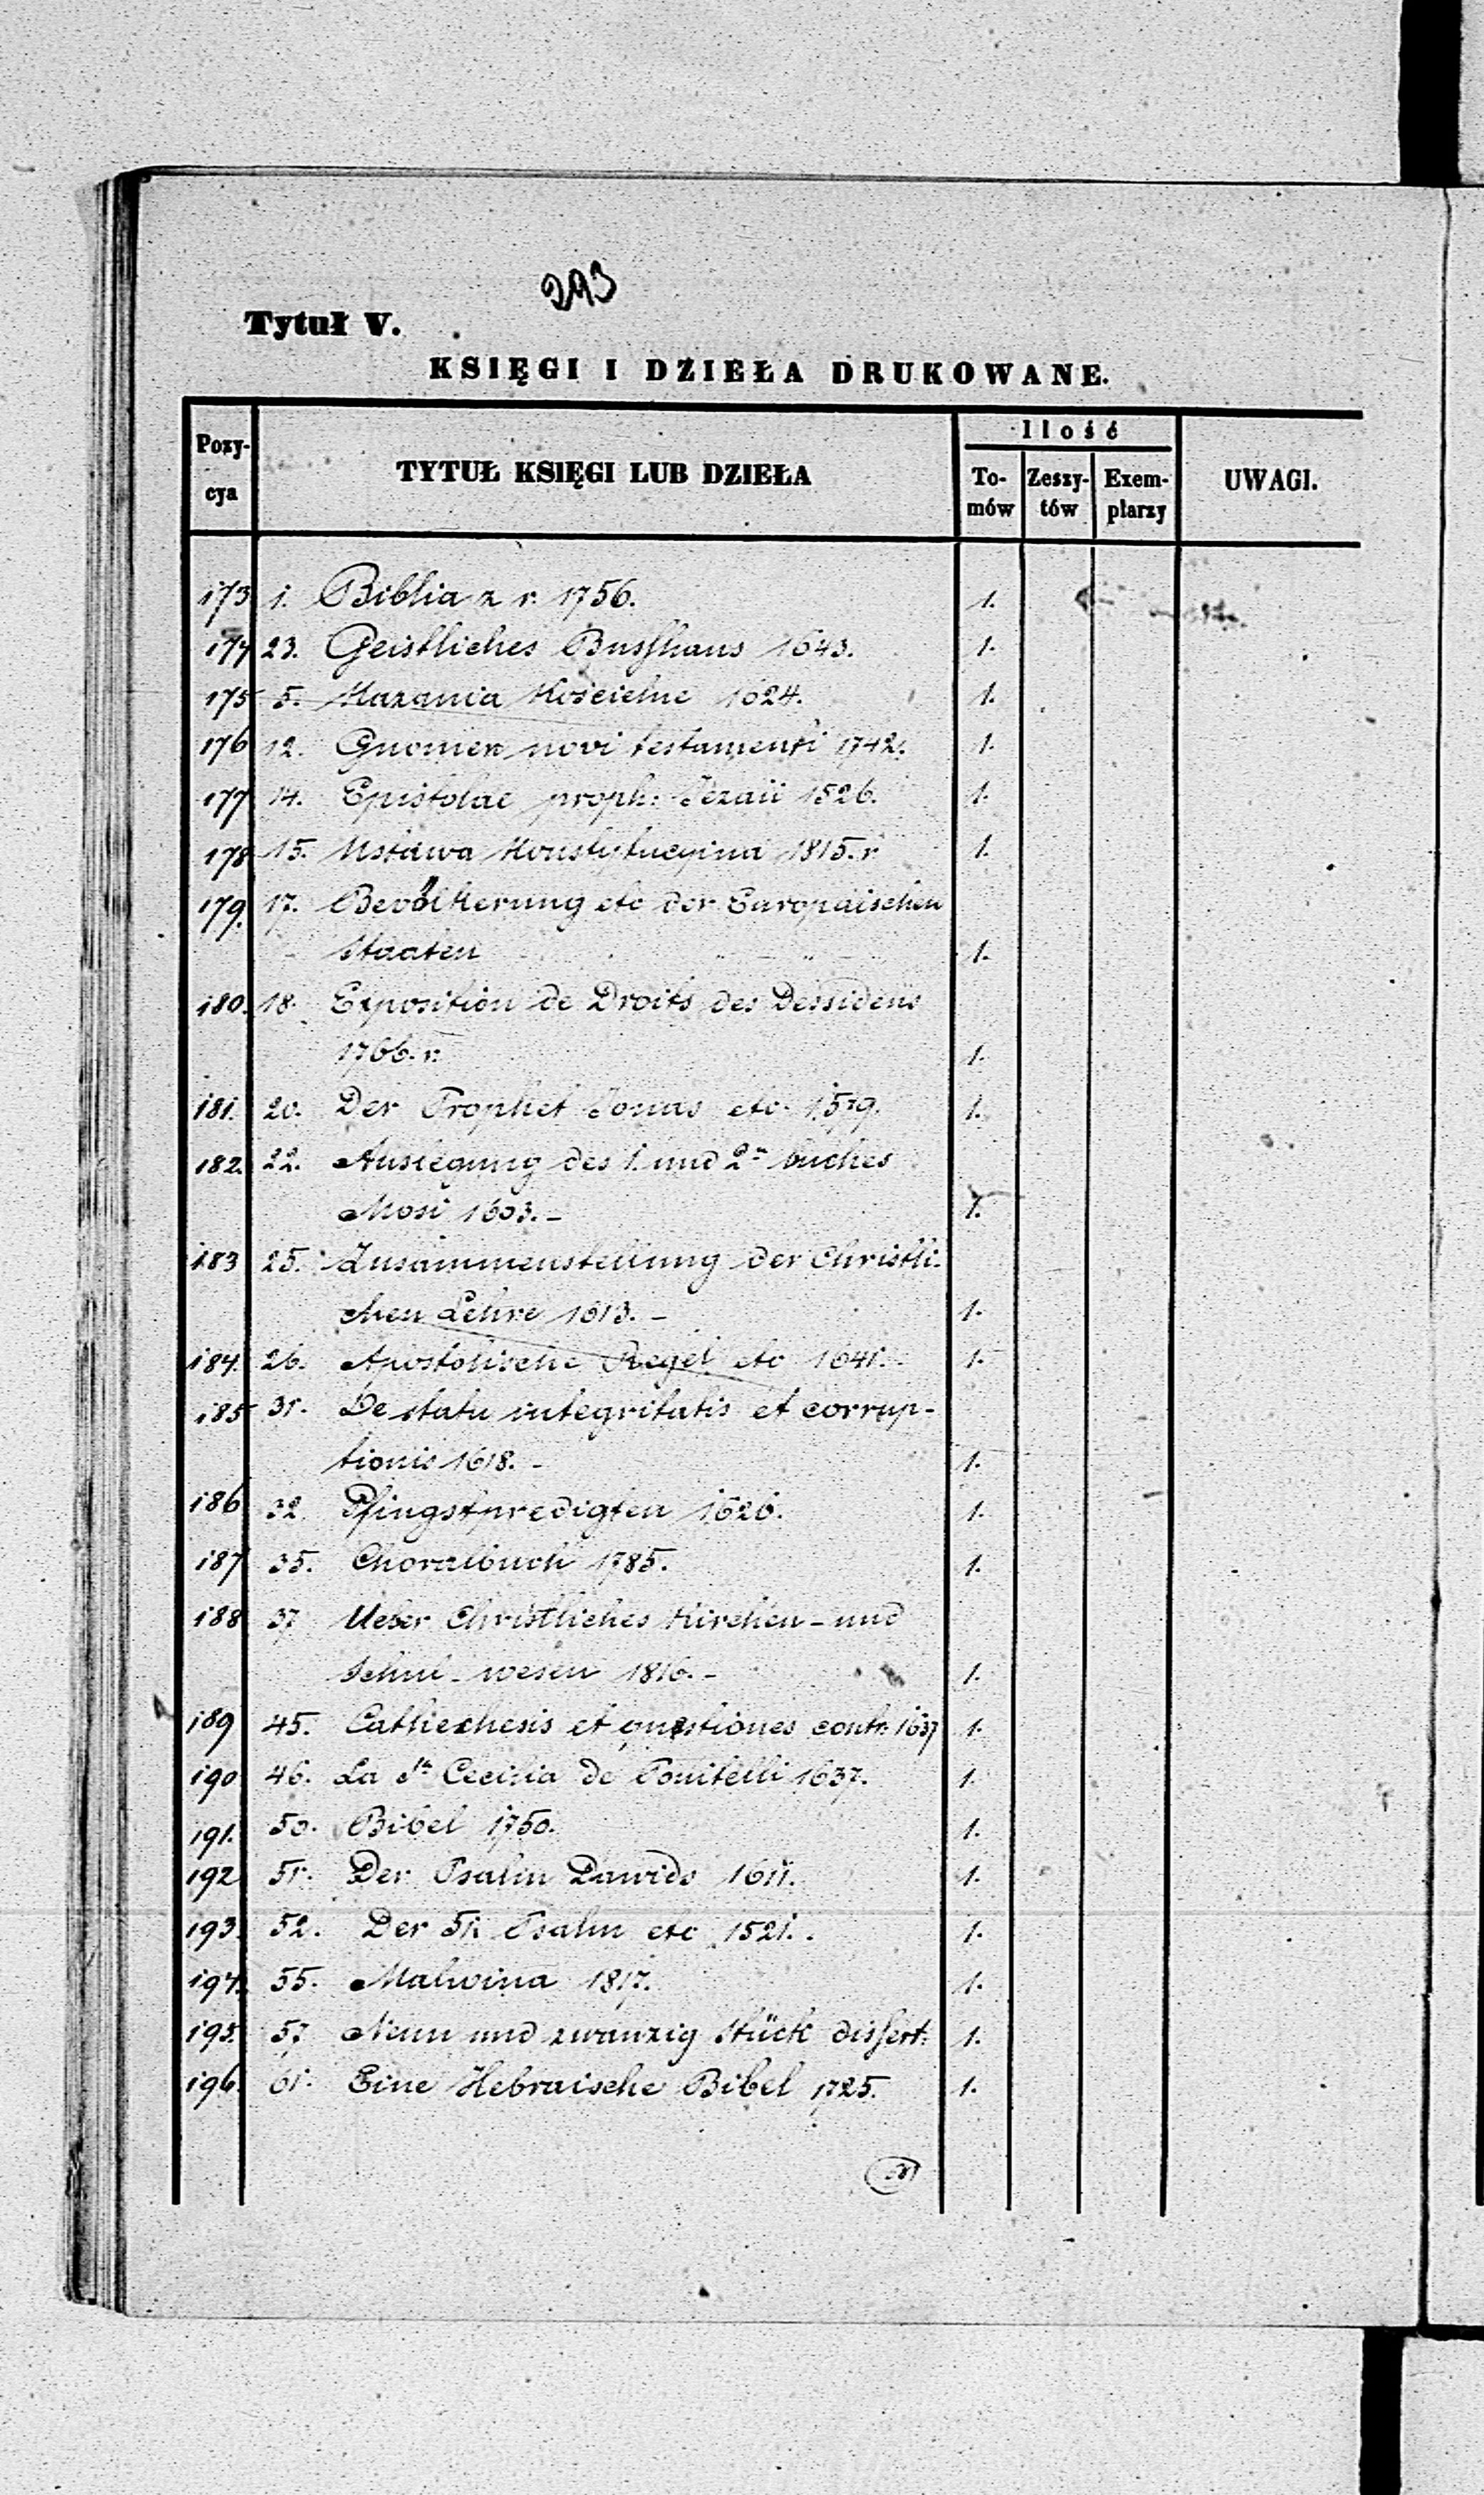 293
Tytuł V.
KSIĘGI I DZIEŁA DRUKOWANE.
Pozy-cya TYTUŁ KSIĘGI LUB DZIEŁA Ilość To-mów Zeszy-tów Exem-plarzy UWAGI.
173 1. Biblia z r. 1756. 1.
174 23. Geistliches Busshaus 1643. 1.
175 5. Kazania Kościelne 1624. 1.
176 12. Gnomen novi testamenti 1742. 1.
177 14. Epistolae proph: Jezaii 1526. 1.
178 15. Ustawa Konstytucyina 1815. r 1.
179. 17. Bevölkerung etc der Europäischen
Staaten 1.
180. 18. Exposition de Droits des Dessidens
1766. r. 1.
181. 20. Der Prophet Jonas etc. 1579. 1.
182. 22. Auslegung des 1. und 2n buches
Mosi 1603. - 1.
183 25. Zusammenstellung der Christli-
chen Lehre 1613. - 1.
184. 26. Apostolische Regel etc 1641. 1.
185 31. De statu integritatis et corrup-
tionis 1618. - 1.
186 32. Pfingstpredigten 1626. 1.
187 35. Choralbuch 1785. 1.
188 37 Ueber Christliches Kirchen - und
Schul - wesen 1816. - 1.
189 45. Cathechesis et questiones contr. 1637 1.
190 46. La Ste Cecilia de 1637. 1.
191. 50. Bibel 1750. 1.
192 51. Der Psalm Dawids 1611. 1.
193. 52. Der 51. Psalm etc 1521. 1.
194. 55. Malwina 1817. 1.
195. 57 Neun und zwanzig Stück dissert: 1.
196. 61. Eine Hebraische Bibel 1725. 1.